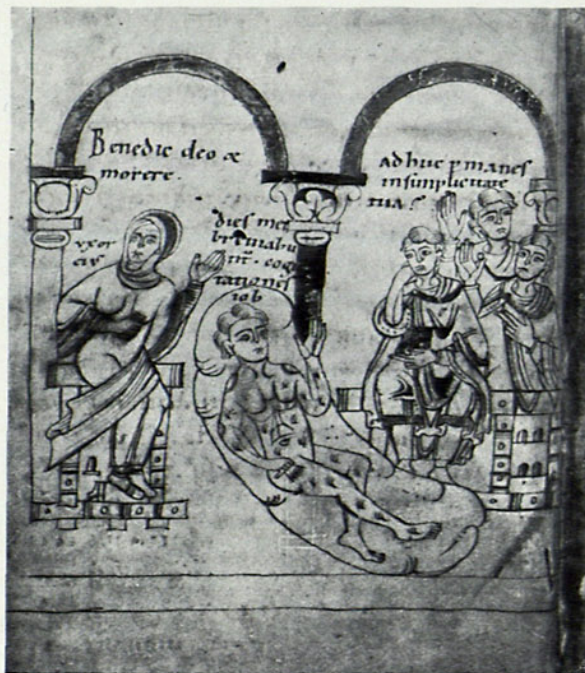 Benedic deo &
morere.
adhuc p manes
insimplicitate
tua?
uxor
eius
dies mei
breuiabu
tationes
iob